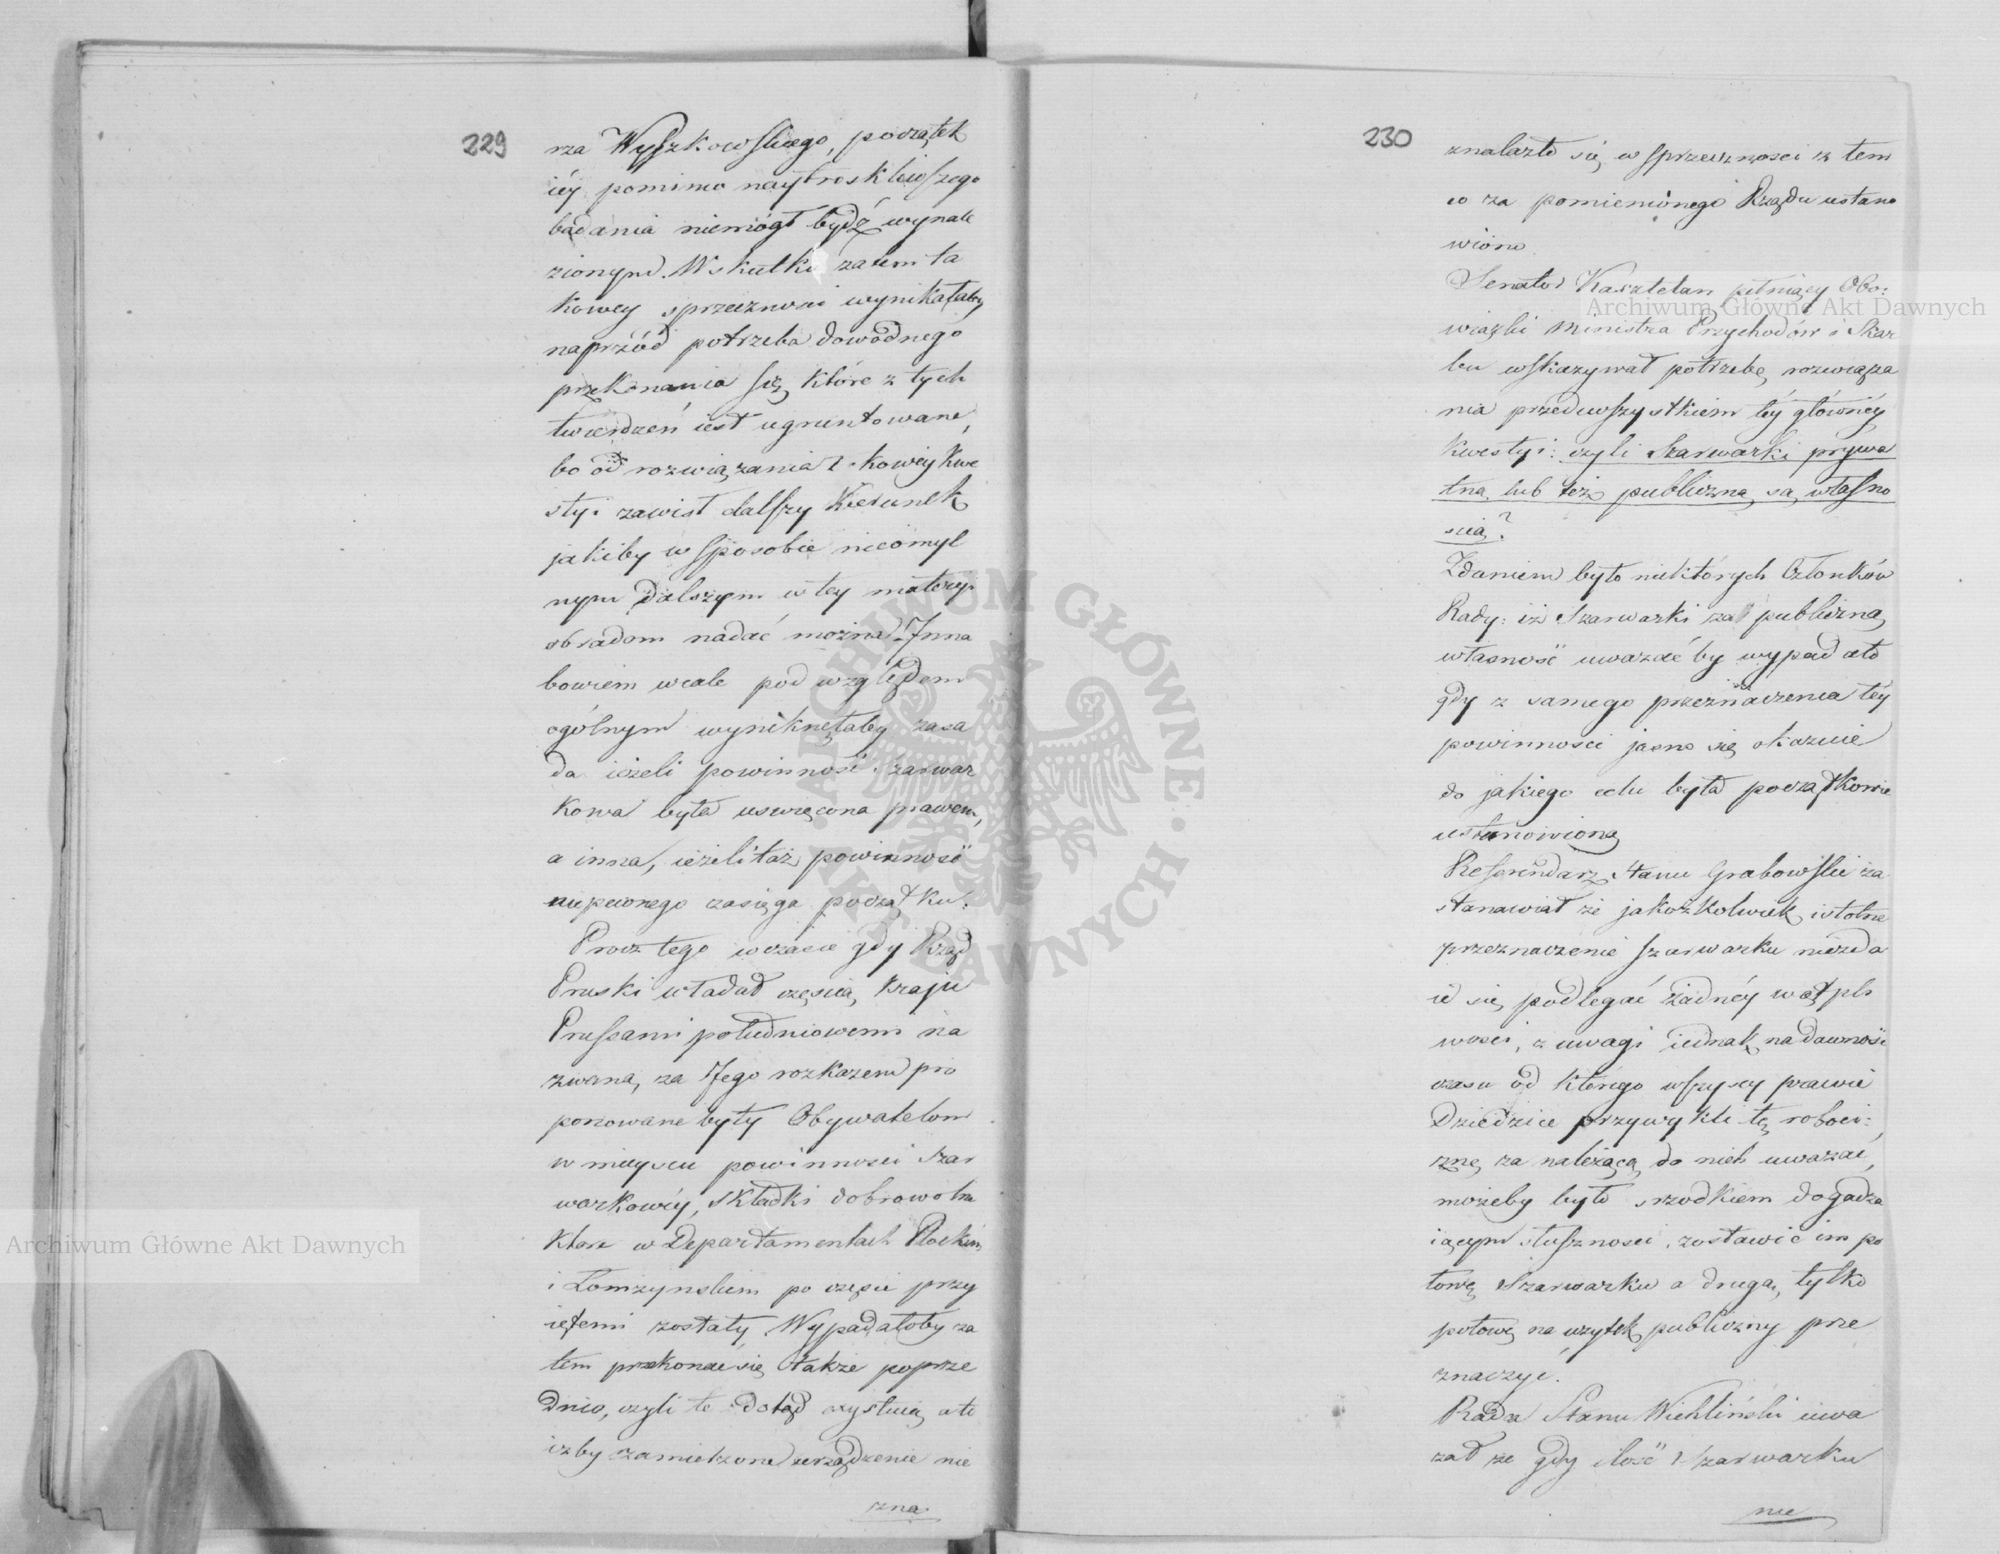 229
rza Wyszkowskiego, początek
iéy pomimo naytroskliwszego
badania niemógł bydź wynale
zionym. W skutku zatem ta
kowey sprzeczności wynikałaby
naprzód potrzeba dowodnego
przekonania się które z tych
twierdzeń iest ugruntowane,
bo od rozwiązania takowey kwe
styi zawisł dalszy kierunek
jakiby w sposobie nieomyl
nym dalszym w tey materyi
obradom nadać można. Inna
bowiem wcale pod względem
ogólnym wyniknęłaby zasa
da ieżeli powinność szarwar
kowa była uświęcona prawem,
a inna, ieżeli taż powinność
niepewnego zasięga początku.
Procz tego w czasie gdy Rząd
Pruski władał częścią kraju
Prussami południowemi na
zwaną, za Jego rozkazem pro
ponowane były Obywatelom
w mieyscu powinności szar
warkowéy, składki dobrowolne
które w Departamentach Płockim
i Łomzynskim po części przy
iętemi zostały. Wypadałoby za
tem przekonać się także poprze
dnio, czyli te dotąd exystuią, ato
izby zamierzone urządzenie nie
zna
230
znalazło się w sprzeczności z tem
co za pomienionego Rządu ustano
wiono
Senator Kasztelan pełniący Obo:
wiązki Ministra Przychodów i Skar
bu wskazywał potrzebę rozwiąza
nia przedewszystkiem téy głównéy
kwestyi: czyli Szarwarki prywa
tną, lub téż publiczną są własno
scią?
Zdaniem było niektórych Członków
Rady: iż Szarwarki za publiczną
własność uważać by wypadało
gdy z samego przeznaczenia téy
powinności jasno się okazuie
do jakiego celu była początkowie
ustanowioną
Referendarz Stanu Grabowski za
stanawiał że jakożkolwiek istotne
przeznaczenie szarwarku niezda
ie się podlegać żadnéy wątpli
wości, z uwagi iednak na dawność
czasu od którego wszyscy prawie
Dziedzice przywykli tę roboci:
znę za należącą do nich uważać,
możeby było srzodkiem dogadza
iącym słuszności, zostawić im po
łowę Szarwarku a drugą tylko
połowę na użytek publiczny prze
znaczyć.
Radca Stanu Wichliński uwa
żał że gdy ilość Szarwarku
nie
Archiwum Główne Akt Dawnych
Archiwum Główne Akt Dawnych
ARCHIWUM GŁÓWNE · AKT DAWNYCH ·